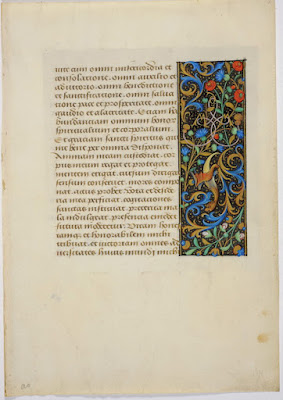 tute cum omni misericordia et
consolatione. omni auxilio et
adiutorio. omni benedictione
et sanctificatione. omni saluta
tione pace et prosperitate. omni
gaudio et alacritate. Etiam ha
bundantiam omnium bonorum
spiritualium et corporalium.
Et gratiam sancti spiritus que
me bene per omnia disponat.
Animam meam custodiat. cor
pus meum regat et protegat.
mentem erigat. cursum dirigat
sensum conferuet. mores compo
nat. actus probet. Vota et deside
ria mea perficiat. cogitationes
sanctas instituat. preterita ma
la indulgeat. presentia emendet
futura moderetur. Vitam hone
stam et honorabilem michi
tribuat. et victoriam contra ad
uersitates huius mundi mich